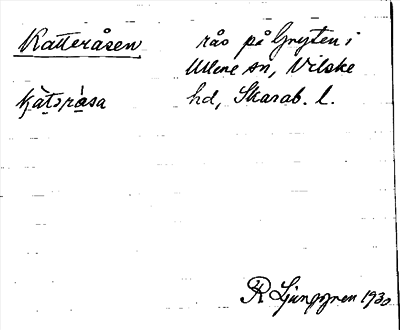 Katteråsen
kàtɔrása
rås på Gryten i
Ullene sn, Vilske
hd, Skarab. l.
R Ljunggren 1930